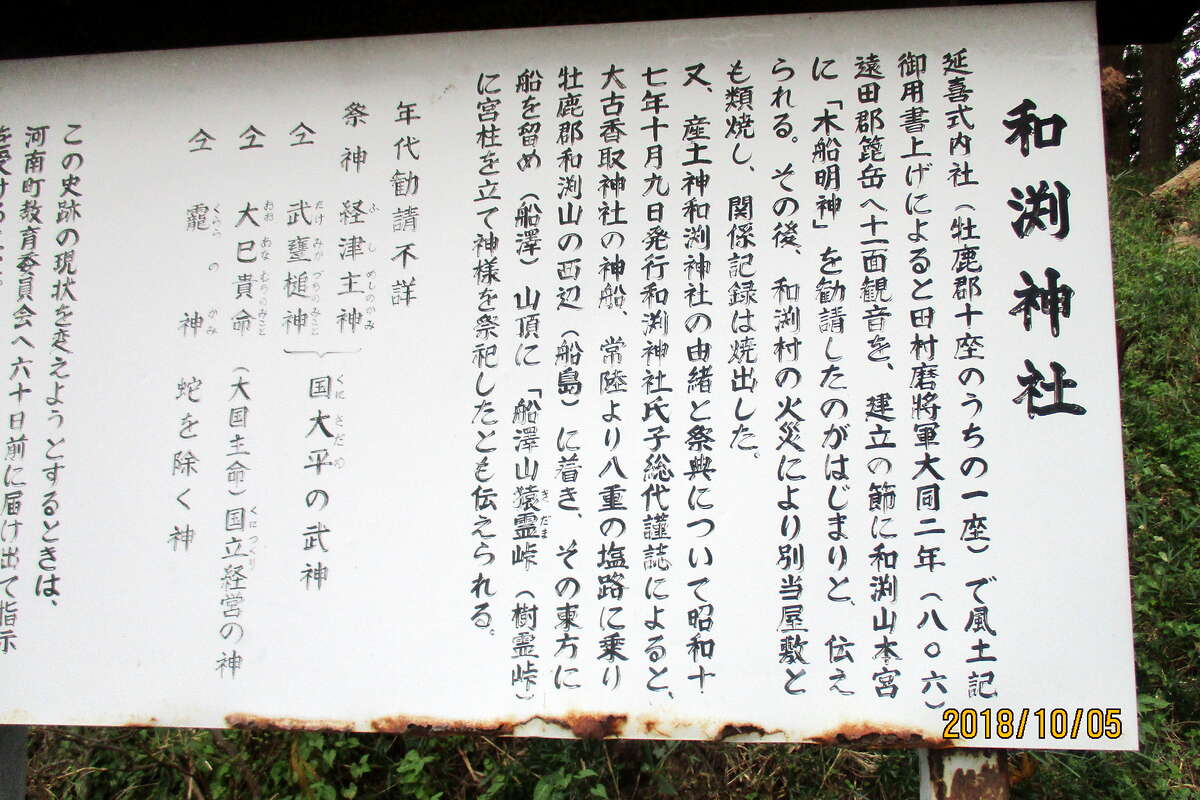 和渕神社
延喜式内社（牡鹿郡十座のうちの一座）で風土記
御用書上げによると田村磨将軍大同二年（八〇六）
遠田郡箆岳へ十一面観音を、建立の節に和渕山本宮
に「木船明神」を勧請したのがはじまりと、伝え
られる。その後、和渕村の火災により別当屋敷と
も類焼し、関係記録は焼出した。
又、産土神和渕神社の由緒と祭典について昭和十
七年十月九日発行和渕神社氏子総代謹誌によると、
大古香取神社の神船、常陸より八重の塩路に乗り
牡鹿郡和渕山の西辺（船島）に着き、その東方に
船を留め（船澤）山頂に「船澤山猿霊峠（樹霊峠）
きだま
に宮柱を立て神様を祭祀したとも伝えられる。
年代勧請不詳
祭神 経津主神
ふしめしのかみ
仝 武甕槌神
たけみかづちのみこと
国大平の武神
くにさだめ
仝 大巳貴命（大国主命）国立経営の神
おおあなむちのみこと
くにつくり
仝 靇の神 蛇を除く神
くららのかみ
この史跡の現状を変えようとするときは、
河南町教育委員会へ六十日前に届け出て指示
を受ける
2018/10/05